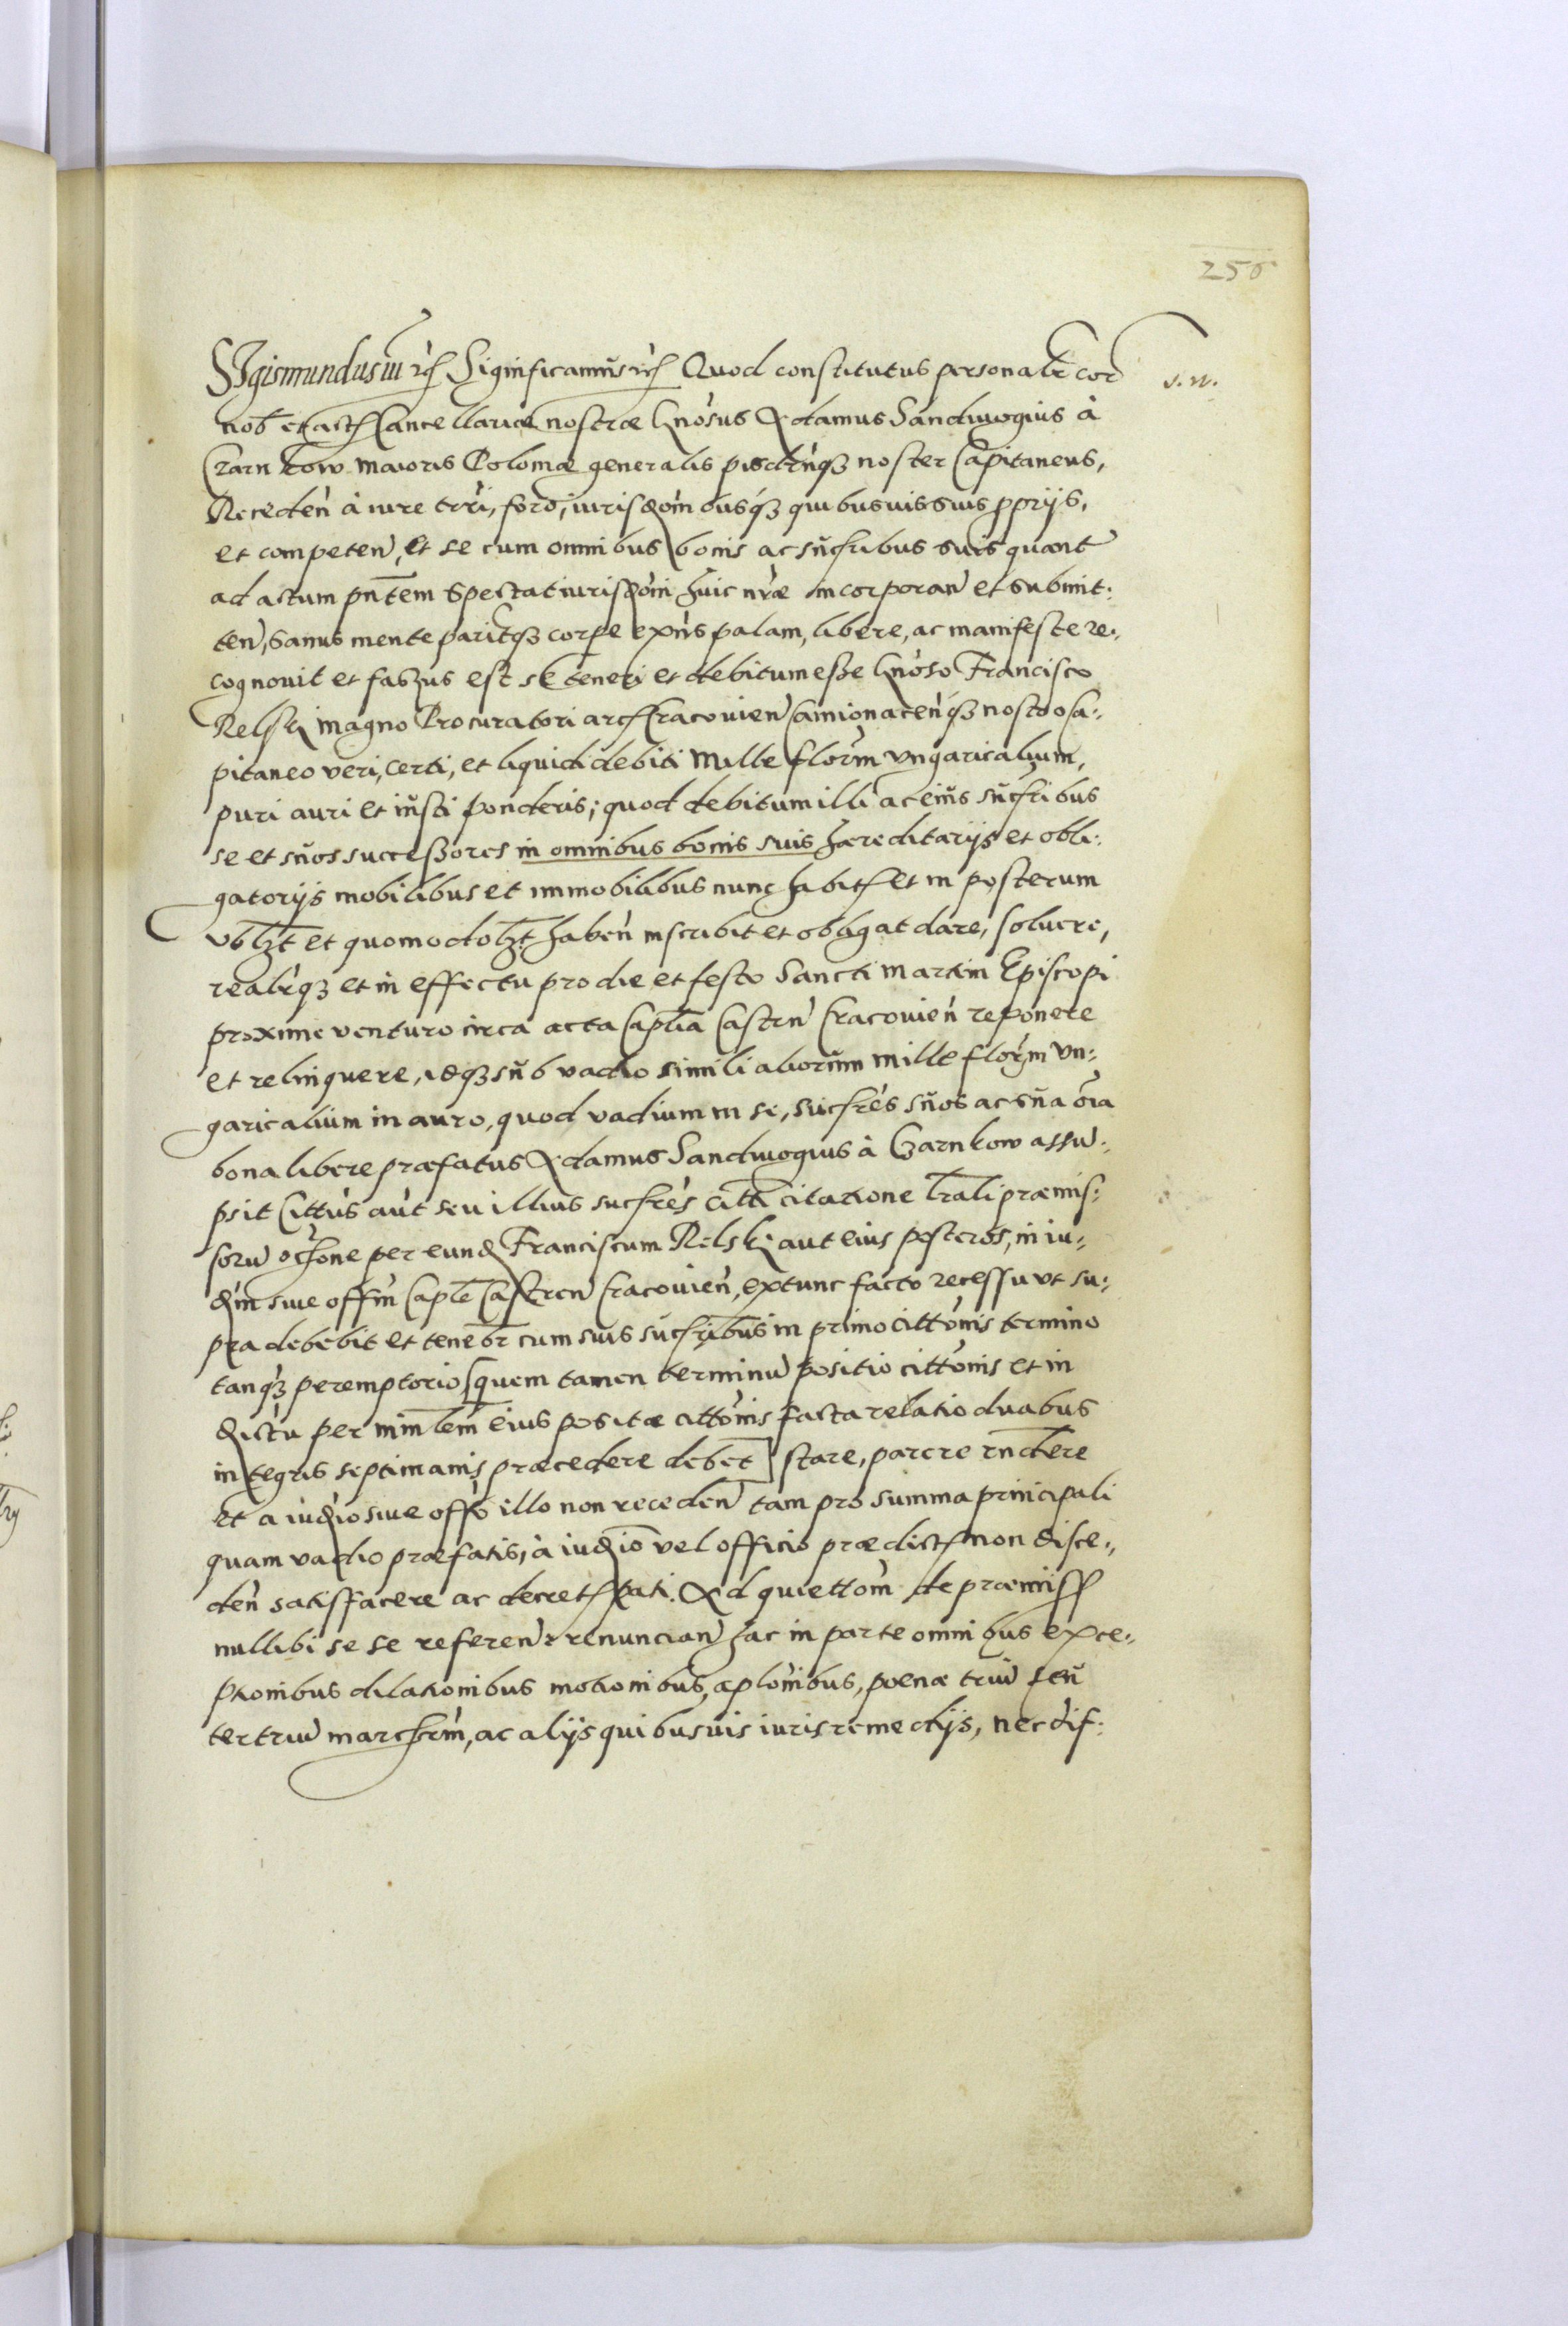 256
SIgismundus iii etc Significamus etc Quod constitutus personalr cor
s. n.
nob et actis Cancellariæ nostræ Gnosus Adamus Sandivogius à
Czarnkow maioris Poloniæ generalis pisdrn̄q₃ noster Capitaneus,
Receden à iure trri, foro, iurisdōmbusq₃ quibusuis suis pprijs,
et competen, et se cum omnibus bonis ac sucrībus suis quant
ad actum pn̄tem spectat iurisdōni huic nr̄æ incorporan et submit:
ten, sanus mente pariterq₃ corpe exns palam, libere, ac manifeste re:
cognouit et fassus est se teneri et debitum esse Gnoso Francisco
Relski magno Procuratori arcis Cracouien Camionacenq₃ nostro Ca:
pitaneo veri, certi, et liquidi debiti mille florm vngaricalium,
puri auri et iusti ponderis; quod debitum illi ac eius sucrībus
se et suos successores in omnibus bonis suis hæreditarijs et obli:
gatorijs mobilibus et immobilibus nunc habitis et in posterum
vbl₃t et quomodol₃t haben inscribit et obligat dare, soluere,
realrq₃ et in effectu pro die et festo Sancti Martini Episcopi
proxime venturo circa acta Captia Castrn Cracouien reponere
et relinquere, idq₃ sub vadio simili aliorum mille florm vn:
garicalium in auro, quod vadium in se, sucrēs suos ac sua oīa
bona libere præfatus Adamus Sandivogius à Czarnkow assu:
psit Cittus aut seu illius sucrēs citti citatione lr̄ali præmis:
soru occōne per eund Franciscum Relski aut eius posteros, in iu:
dm siue offm Caple Castren Cracouien, extunc facto recessu vt su:
pra debebit et tenebr cum suis sucrībus in primo cittōnis termino
tanq₃ peremptorio [quem tamen terminu positio cittōnis et in
dictu per minr̄lem eius positæ cittōnis facta relatio duabus
integris septimanis præcedere debet] stare, parere rn̄dere
et a iudio siue offo illo non receden tam pro summa principali
quam vadio præfatis, à iudio vel officio prædictis non disce:
den satisfacere ac decretis pati. Ad quiettōm de præmiss
nullibi se se referen, renuncian hac in parte omnibus exce:
ptionibus dilationibus motionibus, aplōnibus, poenæ triu seu
ter triu marcarm, ac alijs quibusuis iuris remedijs, nec dif: